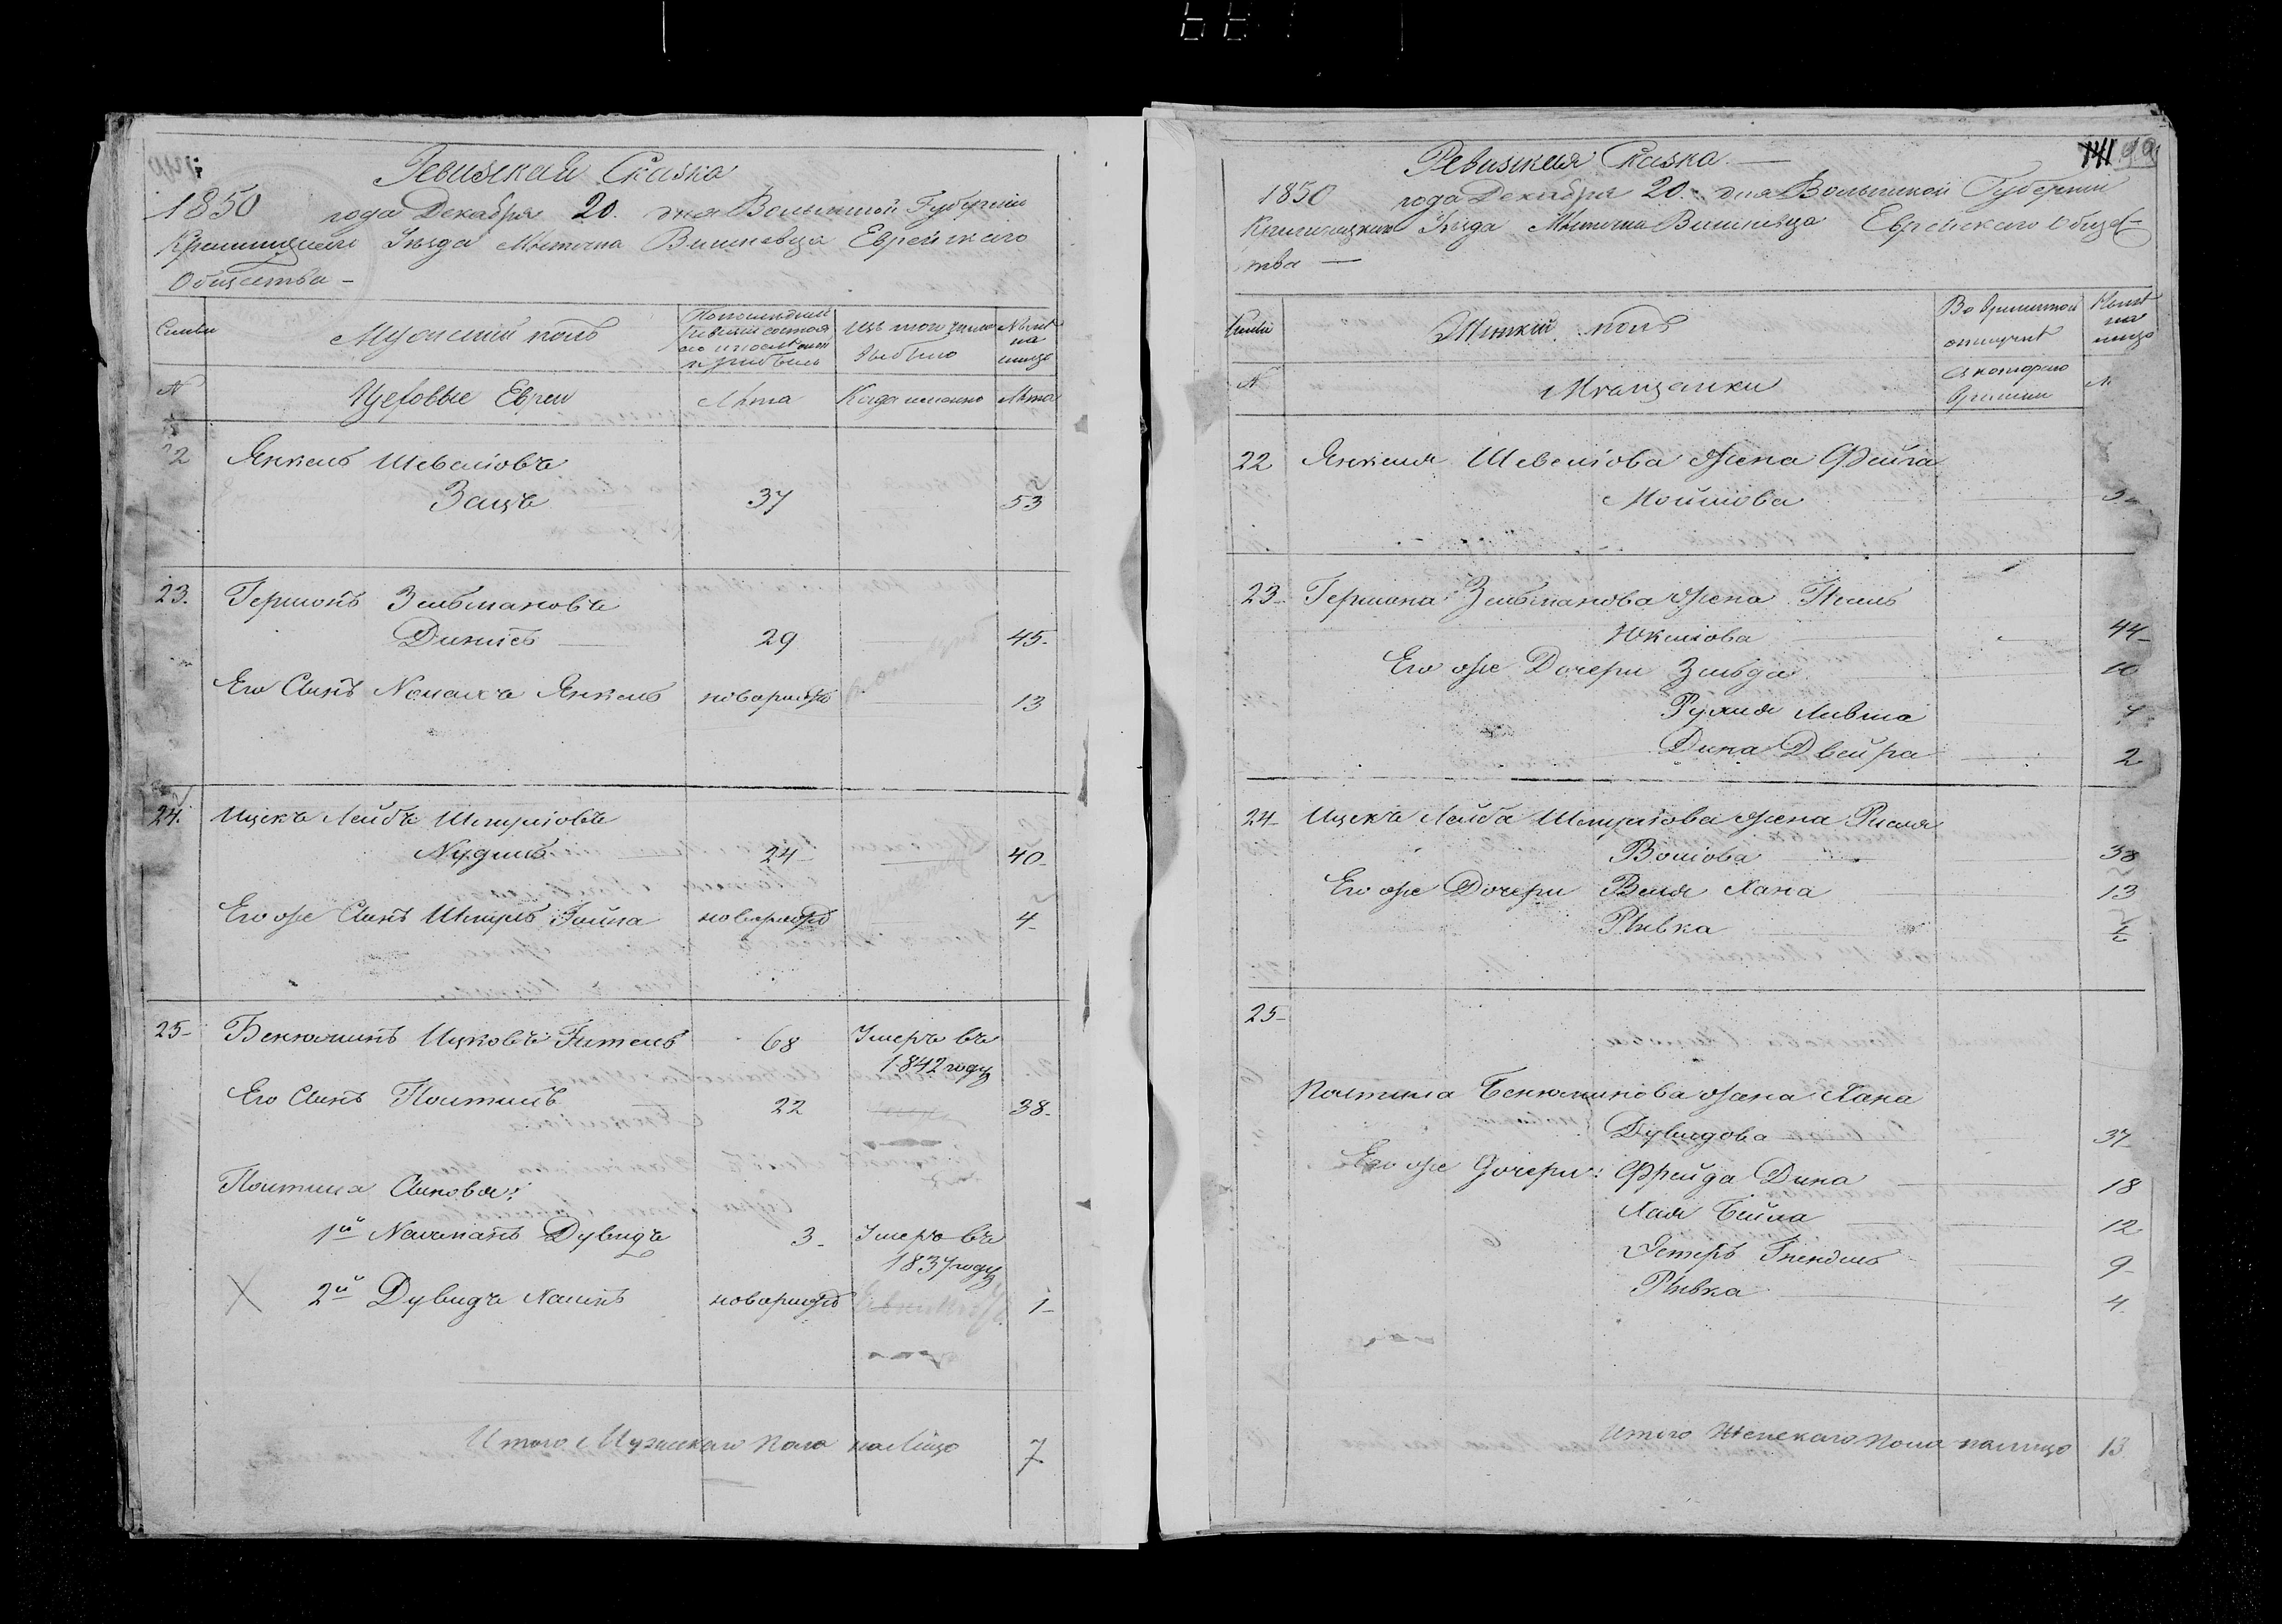 Ревизская Сказка
1850 года Декабря 20. дня Волынской Губернии
Кременецкого Уезда Местечка Вишневца Еврейского
Общества
Семьи
Мужеский полъ
Изъ того числа
выбыло
Ныне
на
лицо
N
Цеховые Евреи
Лета
Когда именно
Лета
22
Янкель Шевелiовъ
Зацъ 37 53
23. Гершонъ Зельмановъ
29 45
Его Сынъ Янкель новорожд 13
24. Ицекъ Лейбъ Шмулiовъ
Нудель 24 40
Его же Сынъ Шмуль новорожд 4
25 Бенюминъ Ицковъ Гитель 68 Умеръ въ
1842 году
Его Сынъ 22 38
Сыновья:
1й Нахманъ Дувидъ 3 Умеръ въ
1837 году
2й Дувидъ новорожд 1
Итого Мужескаго пола на лицо 7
Ревизская Сказка
141
1850 года Декабря 20. дня Волынской Губернии
Кременецкого Уезда Местечка Вишневца Еврейского Общес
тва
Семьи
Женский полъ
Во временной
отлучке
Ныне
на
лицо
N
Мещанки
съ которого
времени
22 Янкеля Шевелiова жена Фейга
Мошкова
23 Гершона Зельманова жена
Юкелiова 44
Его же Дочери Зельда 10
Рухля Ливша
Дина Двейра 2
24 Ицекъ Лейба Шмулiова жена Рися
Волiова 38
Его же Дочери Вели Хана 13
Ривка ½
25
Бенюминова жена Хана
Дувидова 37
Его же Дочери: Фрейда Дина 18
Хая Бейла 12
Эстеръ Гнендель 9
Ривка 4
Итого Женскаго пола налицо 13